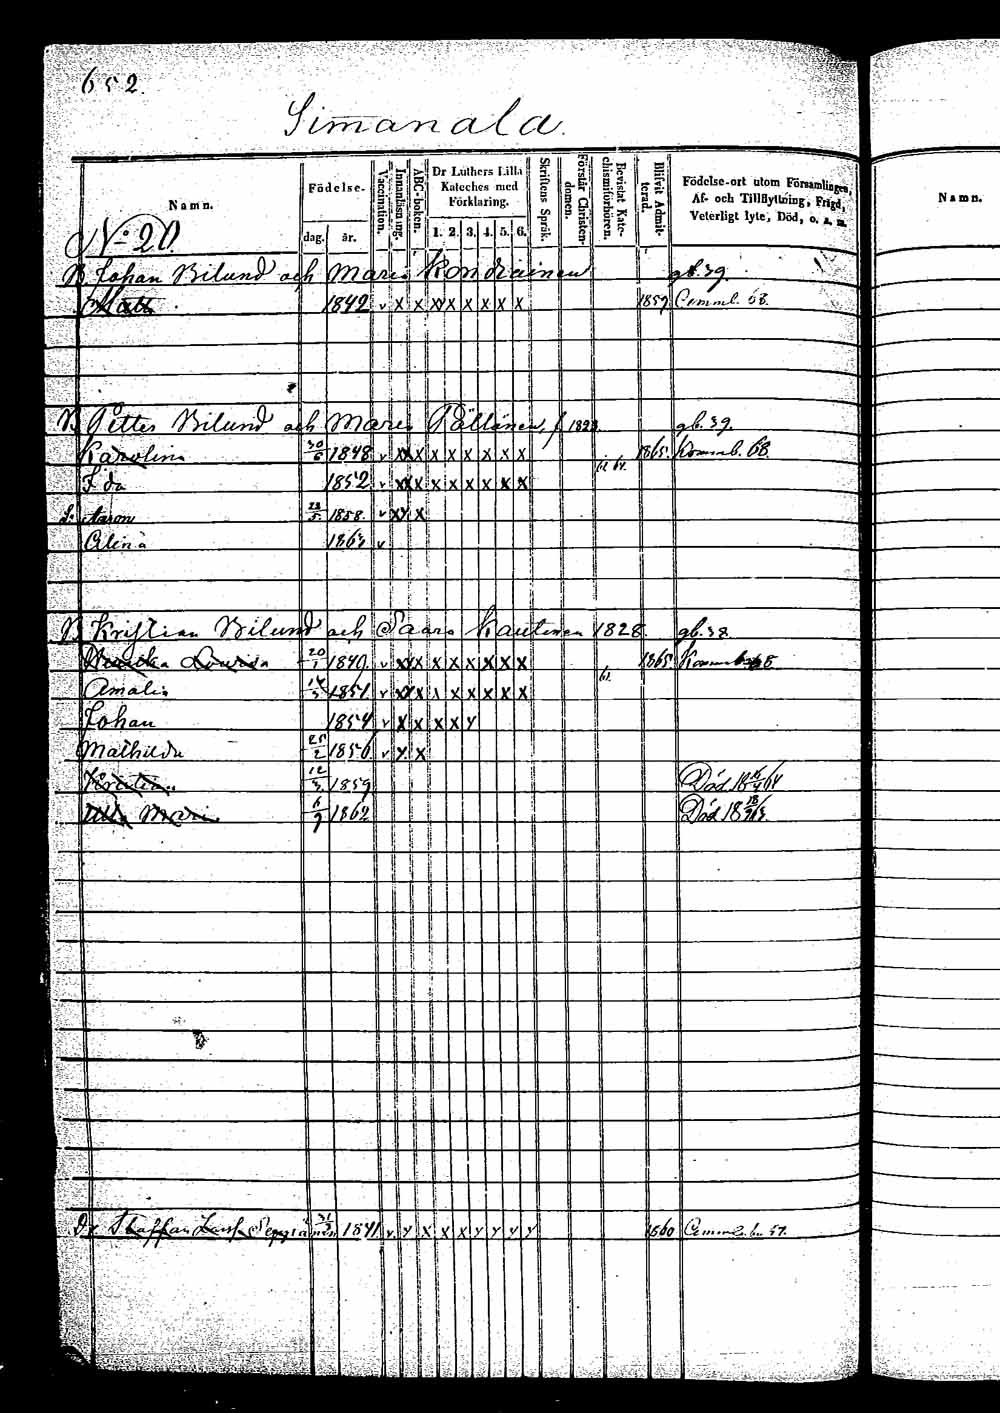 652.
Simanala.
Namn.
Födelse.
dag. år.
Vaccination.
Innanläsning.
ABC-boken.
Dr Luthers Lilla Kateches med Förklaring.
1. 2. 3. 4. 5. 6.
Skriftens Språk.
Förstår Christendomen.
Bevistat Katechismiförhören.
Blifvit Admitterad.
Födelse-ort utom Församlingen, Af- och Tillflyttning, Frägd, Veterligt lyte, Död, o. s. m.
Namn.
No 20.
B. Johan Bilund och Maria Kondiainen gb. 39.
Matts 1842 v x x x x x x x x x 1859 Comml. 68.
B. Petter Bilund och Maria Pöllänen, f 1823. gb. 39.
Karolina 30/6 1848 v x x x x x x x x x 61. 64. 1865. Kommb. 68.
Ida 1852 v x x x x x x x x x
S: Aaron 23/5 1858. v x y x
Alina 1863 v
B Kristian Bilund och Saara Kautinen 1828. gb. 38.
Lovisa 20/1 1840. v x x x x x x x x x 1865 Kommb 68
Amalia 14/5 1851. v x x x x x x x x x 61.
Johan 1854 v x x x x y
Mathilda 25/2 1856. v y x
12/3 1859 Död 18 /64
Ulla Maria 6/9 1862 Död 18
Dr. Staffan 31/ 1841. v y x x x y y y y 1860 Comml. b. 57.